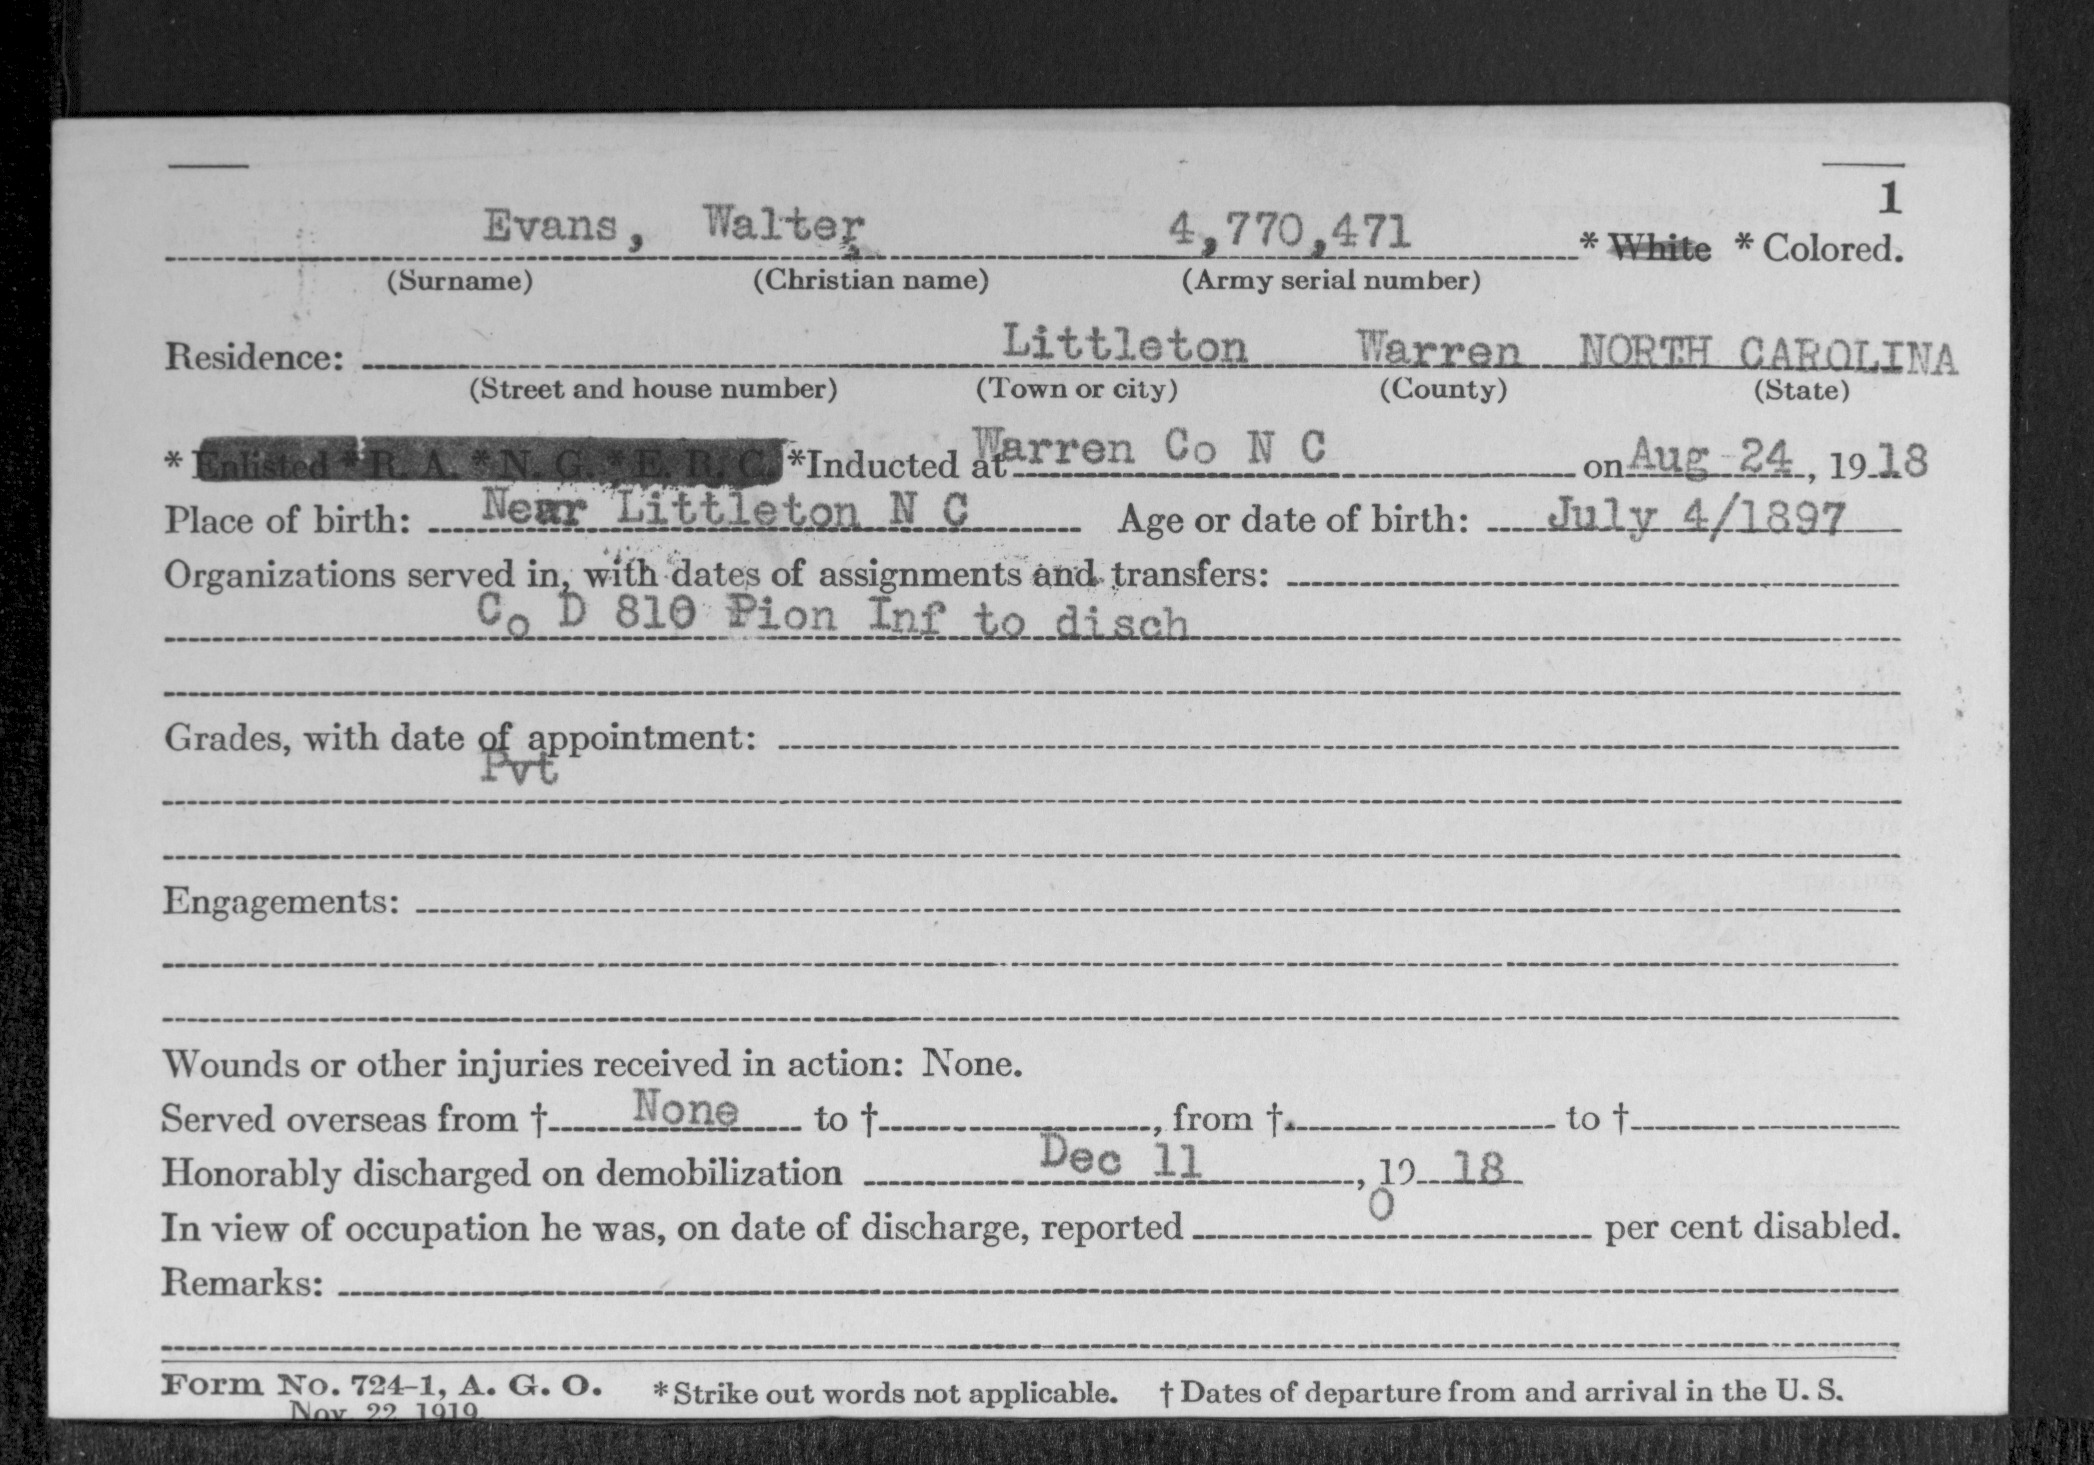 1
Evans, Walter, 4,770,471 * White * Colored.
(Surname) (Christian name) (Army serial number)
Residence: Littleton Warren NORTH CAROLINA
(Street and house number) (Town or city) (County) (State)
* Enlisted * R. A. * N. G. * E. R. C. *Inducted at Warren Co N C on Aug 24, 1918
Place of birth: Near Littleton N C Age or date of birth: July 4/1897
Organizations served in, with dates of assignments and transfers:
Co D 810 Pion Inf to disch
Grades, with date of appointment:
Pvt
Engagements:
Wounds or other injuries received in action: None.
Served overseas from † None to †, from † to †
Honorably discharged on demobilization Dec 11, 19 18
In view of occupation he was, on date of discharge, reported 0 per cent disabled.
Remarks:
Form No. 724-1, A. G. O. * Strike out words not applicable. † Dates of departure from and arrival in the U. S.
Nov. 22, 1919